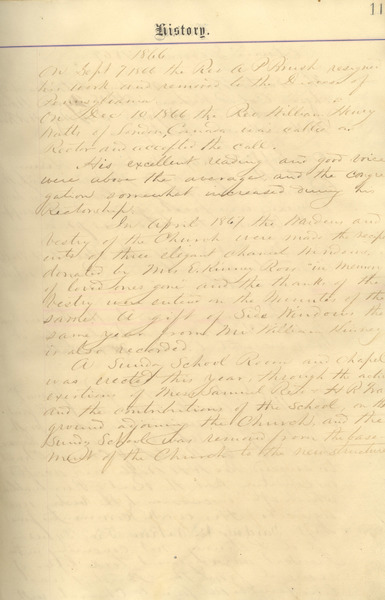 11
History.
1866
On Sept 7 1866 the Rev A P resigned
his work and removed to the Diocese of
Pennsylvania
On Dec 10 1866 the Rev William Henry
of was called as
Rector and accepted the call.
His excellent reading and good voice
were above the average and the congre
gation somewhat increased during his
Rectorship.
In April 1867 the Wardens and
Vestry of the Church were made the recipi
ents of three elegant Chancel Windows,
donated by Ross "in memory
of loved ones gone" and the thanks of the
Vestry were entered on the Minutes of the
same. A gift of Side Windows the
same year from Mr William
is also recorded.
A Sunday School Room and Chapel
was erected this year, through the active
exertions of Samuel H R
and the contributions of the School, on the
ground adjoining the Church and the
Sunday School was removed from the base
ment of the Church to the new structure